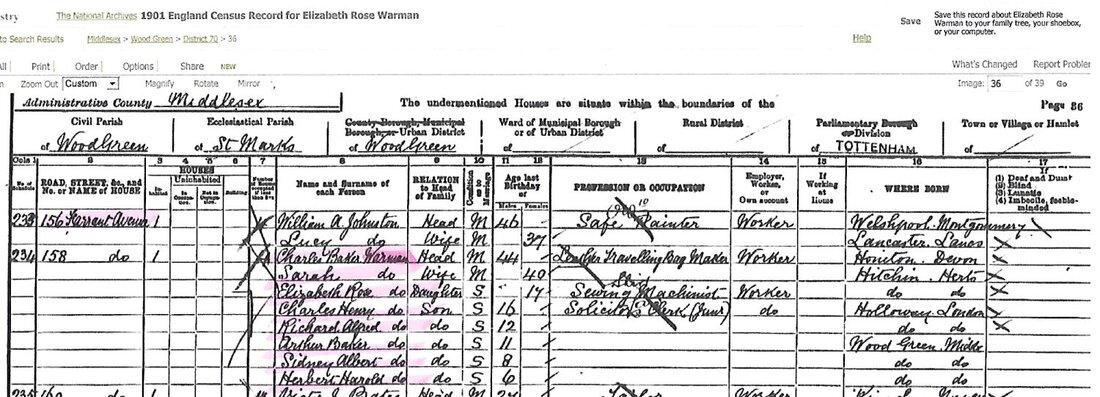 stry The National Archives 1901 England Census Record for Elizabeth Rose Warman
Save
Save this record about Elizabeth Rose
Warman to your family tree, your shoebox,
or your computer.
to Search Results Middlesex > Wood Green > District 70 > 36 Help
All Print Order Options Share NEW What's Changed Report Problem
Zoom Out Custom Magnify Rotate Mirror Image: 36 of 39 Go
Administrative County Middlesex The undermentioned Houses are situate within the boundaries of the Page 36
Civil Parish Ecclesiastical Parish County Borough, Municipal Ward of Municipal Borough Rural District Parliamentary Borough Town or Village or Hamlet
Borough, or Urban District or of Urban District or Division
of Wood Green of St Marks of Wood Green of of TOTTENHAM of
Cols 1 2 3 4 5 6 7 8 9 10 11 12 13 14 15 16 17
ROAD, STREET, &c., and No. or NAME of HOUSE HOUSES Uninhabited Name and Surname of each Person RELATION to Head of Family Condition as to Marriage Age last Birthday of Males Females PROFESSION OR OCCUPATION Employer, Worker, or Own account If Working at Home WHERE BORN If (1) Deaf and Dumb (2) Blind (3) Lunatic (4) Imbecile, feeble-minded
233 156 Farrant Avenue 1 William A Johnston Head M 46 Safe Painter Worker Welshpool Montgomery
Lucy do Wife M 37 Lancaster Lancs
234 158 do 1 Charles Baker Warman Head M 44 Leather Travelling Bag Maker Worker Honiton Devon
Sarah do Wife M 40 Hitchin Herts
Elizabeth Rose do Daughter S 17 Sewing Machinist Worker do do
Charles Henry do Son S 16 Solicitors Clerk (Junr) do Holloway London
Richard Alfred do do S 12 do do
Arthur Baker do do S 11 Wood Green Middx
Sidney Albert do do S 8 do do
Herbert Harold do do S 6 do do